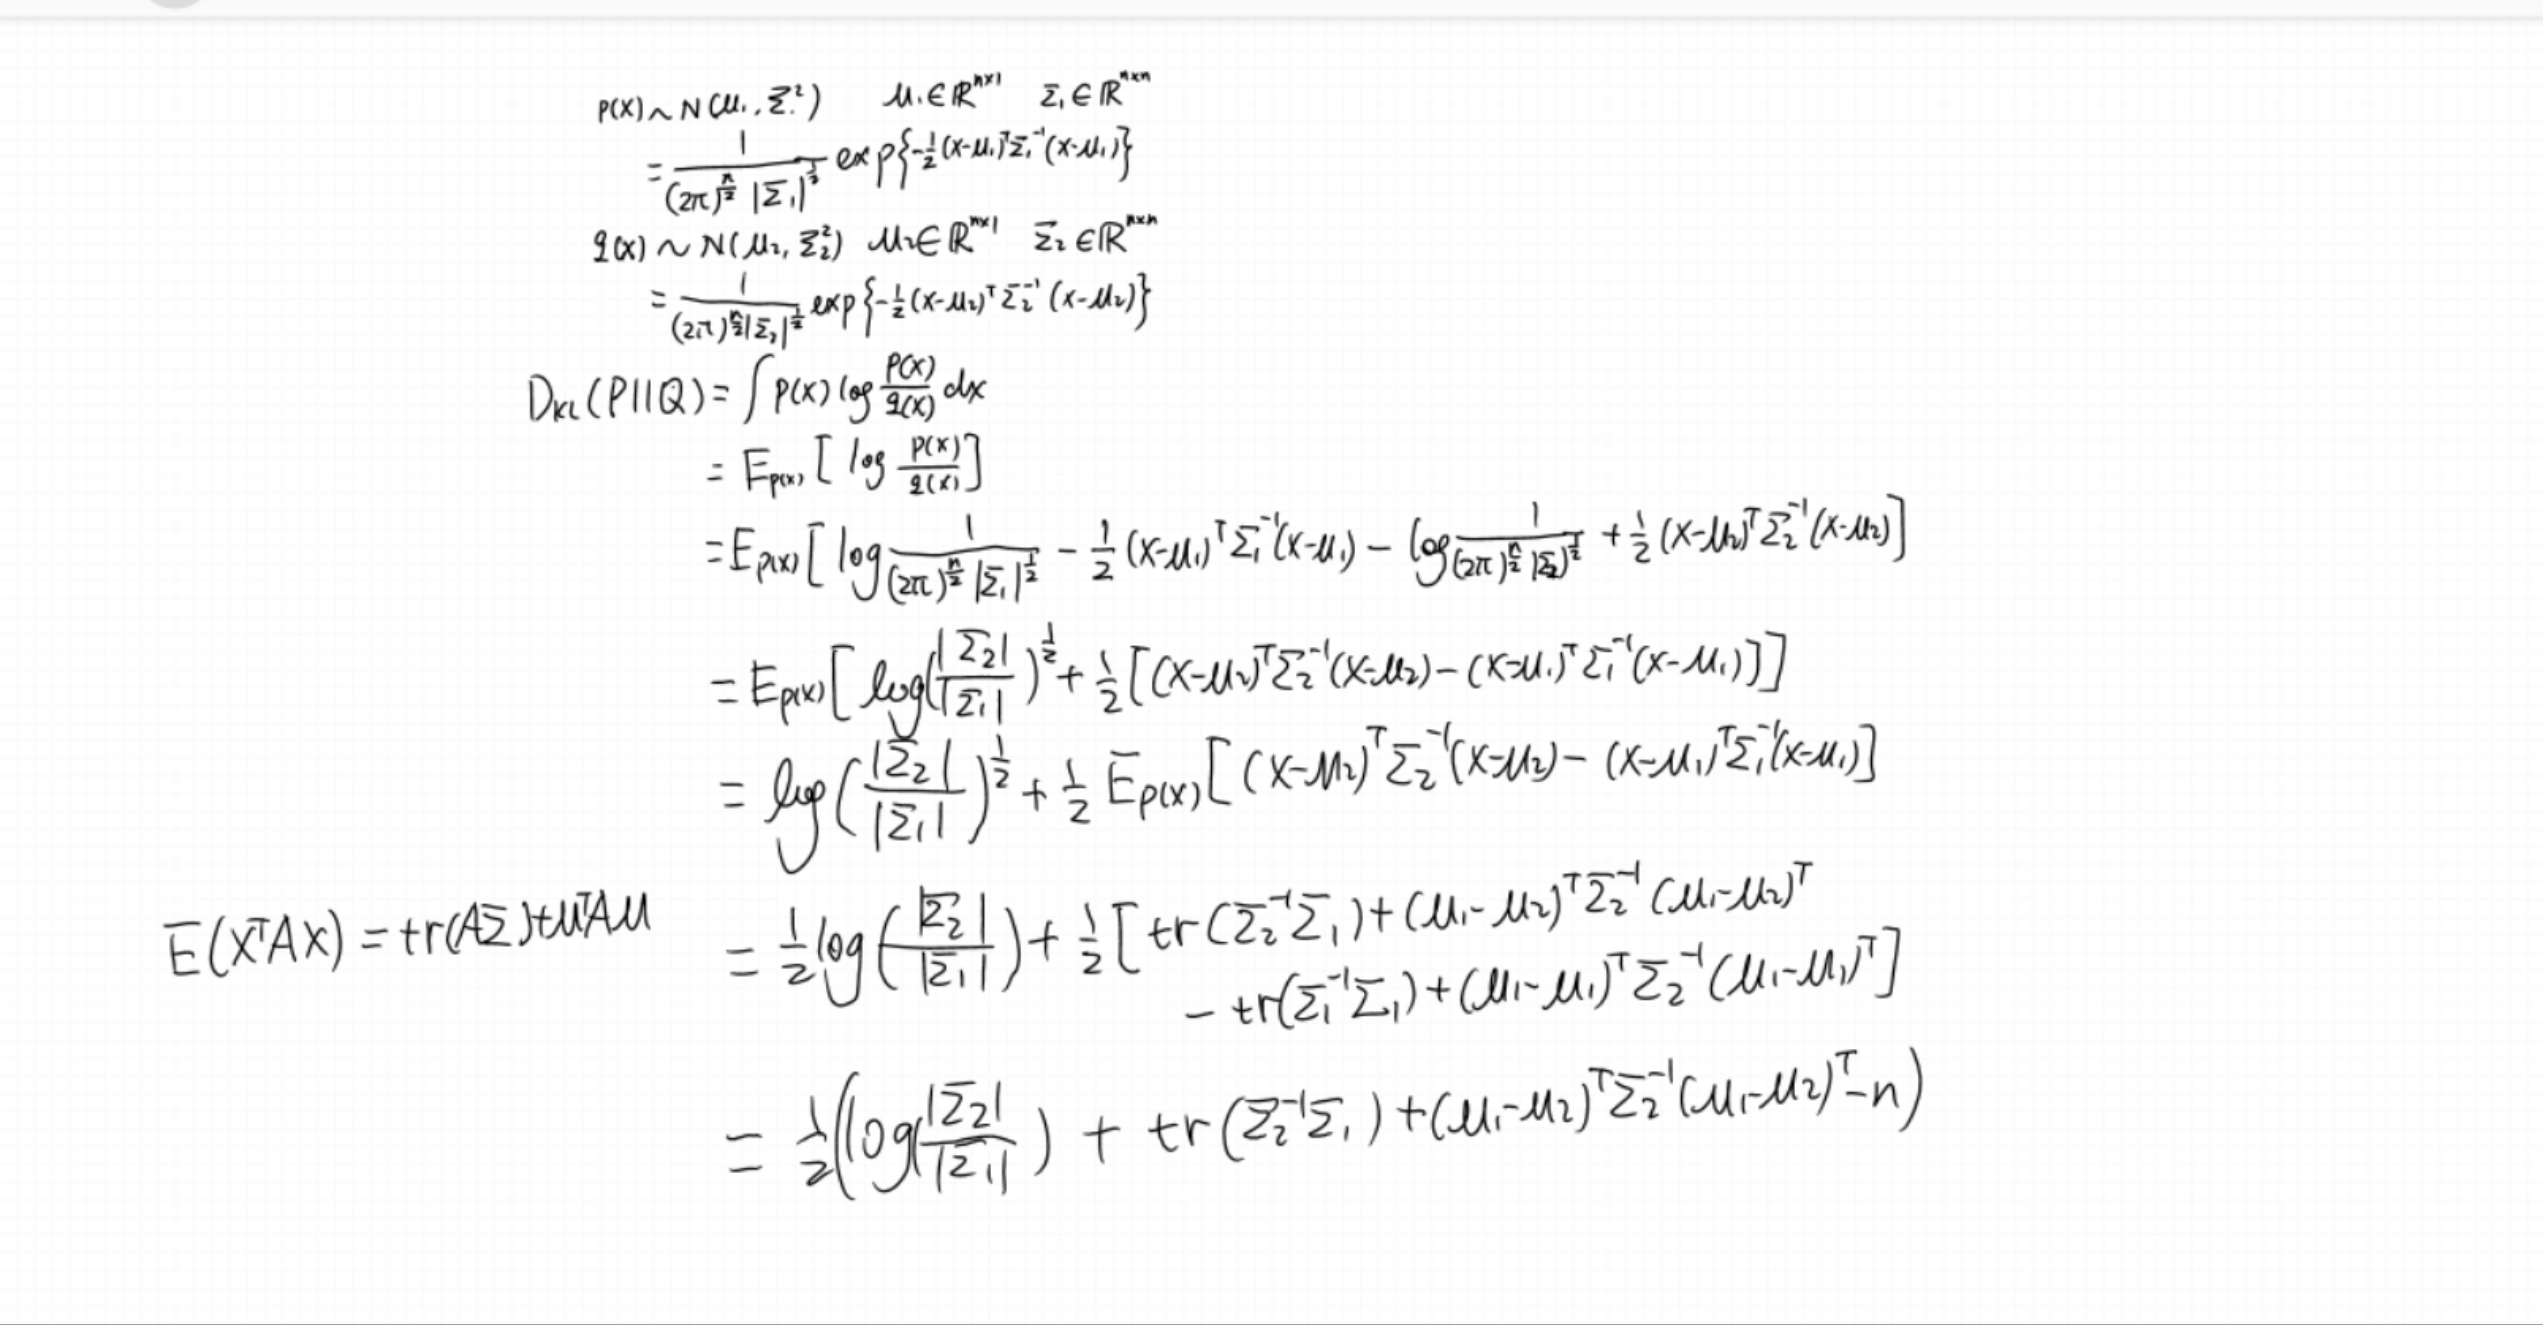 p(x) ~ N(μ₁, Σ₁²) μ₁ ∈ ℝⁿˣ¹ Σ₁ ∈ ℝⁿˣⁿ
= 1/((2π)^(n/2) |Σ₁|^(1/2)) exp{-1/2 (x-μ₁)ᵀ Σ₁⁻¹ (x-μ₁)}
q(x) ~ N(μ₂, Σ₂²) μ₂ ∈ ℝⁿˣ¹ Σ₂ ∈ ℝⁿˣⁿ
= 1/((2π)^(n/2) |Σ₂|^(1/2)) exp{-1/2 (x-μ₂)ᵀ Σ₂⁻¹ (x-μ₂)}
D_KL(P||Q) = ∫ p(x) log p(x)/q(x) dx
= E_p(x) [log p(x)/q(x)]
= E_p(x) [log 1/((2π)^(n/2) |Σ₁|^(1/2)) - 1/2 (x-μ₁)ᵀ Σ₁⁻¹ (x-μ₁) - log 1/((2π)^(n/2) |Σ₂|^(1/2)) + 1/2 (x-μ₂)ᵀ Σ₂⁻¹ (x-μ₂)]
= E_p(x) [log(|Σ₂|/|Σ₁|)^(1/2) + 1/2 [(x-μ₂)ᵀ Σ₂⁻¹ (x-μ₂) - (x-μ₁)ᵀ Σ₁⁻¹ (x-μ₁)]]
= log(|Σ₂|/|Σ₁|)^(1/2) + 1/2 E_p(x) [(x-μ₂)ᵀ Σ₂⁻¹ (x-μ₂) - (x-μ₁)ᵀ Σ₁⁻¹ (x-μ₁)]
E(XᵀAX) = tr(AΣ) + μᵀAμ
= 1/2 log(|Σ₂|/|Σ₁|) + 1/2 [tr(Σ₂⁻¹Σ₁) + (μ₁-μ₂)ᵀ Σ₂⁻¹ (μ₁-μ₂)ᵀ
- tr(Σ₁⁻¹Σ₁) + (μ₁-μ₁)ᵀ Σ₂⁻¹ (μ₁-μ₁)ᵀ]
= 1/2 (log(|Σ₂|/|Σ₁|) + tr(Σ₂⁻¹Σ₁) + (μ₁-μ₂)ᵀ Σ₂⁻¹ (μ₁-μ₂)ᵀ - n)